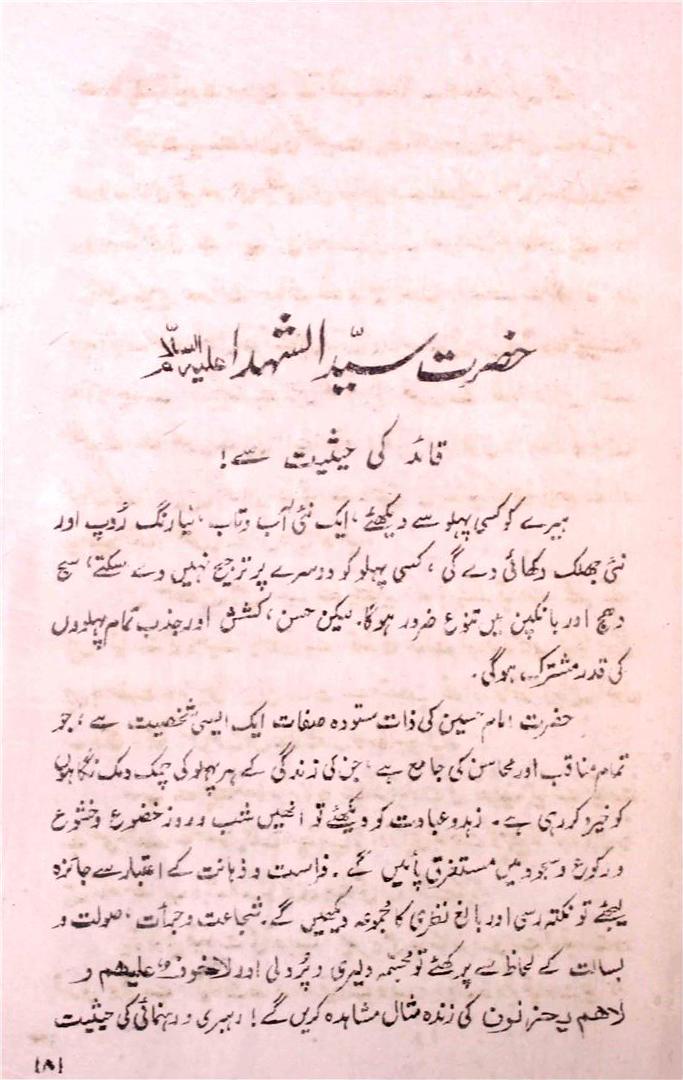 حضرت سیّد الشہدا علیہ السّلام
قائد کی حیثیت سے!
ہیرے کو کسی پہلو سے دیکھئے، ایک نئی آب و تاب، نیا رنگ رُوپ اور
نئی جھلک دکھائی دے گی، کسی پہلو کو دوسرے پر ترجیح نہیں دے سکتے، سج
دھج اور بانکپن میں تنوع ضرور ہوگا. لیکن حسن، کشش اور جذب تمام پہلوؤں
کی قدر مشترک ہوگی.
حضرت امام حسین کی ذات ستودہ صفات ایک ایسی شخصیت ہے، جو
تمام مناقب اور محاسن کی جامع ہے، جن کی زندگی کے ہر پہلو کی چمک دمک نگاہوں
کو خیرہ کر رہی ہے. زہد و عبادت کو دیکھئے تو انھیں شب و روز خضوع و خشوع
و رکوع و سجود میں مستغرق پائیں گے. فراست و ذہانت کے اعتبار سے جائزہ
لیجئے تو نکتہ رسی اور بالغ نظری کا مجموعہ دیکھیں گے. شجاعت و جرأت، صولت و
بسالت کے لحاظ سے پرکھئے تو مجسّمہ دلیری و پُر دلی اور لاخوف علیھم و
لاھم یحزنون کی زندہ مثال مشاہدہ کریں گے! رہبری و رہنمائی کی حیثیت
۱۸۱